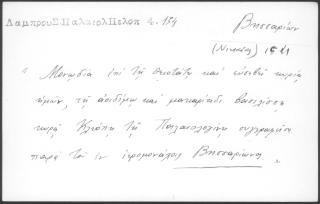 Λαμπρου Σ Παλαιολ Πελοπ 4. 154
Βησσαρίων
(Νικαίας)
" Μονωδία ἐπὶ τῇ θεοτάτῃ καὶ εὐσεβεῖ κυρίᾳ
ἡμῶν, τῇ ἀοιδίμῳ καὶ μακαρίτιδι βασιλίσσῃ
κυρᾷ Κλεόπῃ τῇ Παλαιολογίνῃ συγγραφεῖσα
παρὰ τοῦ ἐν ἱερομονάχοις Βησσαρίωνος "